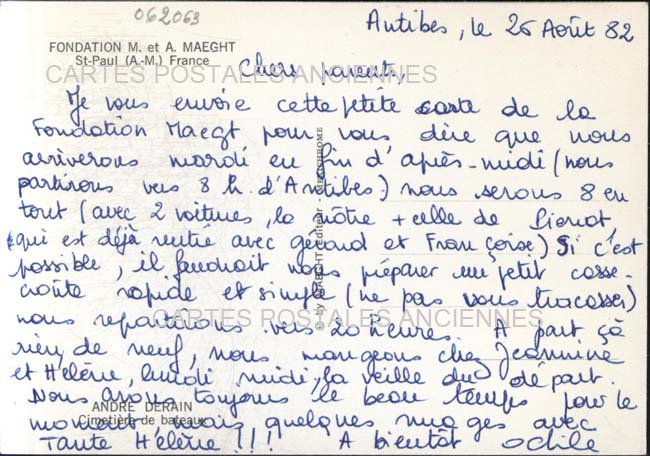 062063
Antibes, le 26 Août 82
FONDATION M. et A. MAEGHT
St-Paul (A.-M.) France
CARTES POSTALES ANCIENNES
Chers parents,
Je vous envoie cette petite carte de la
Fondation Maegt pour vous dire que nous
arriverons mardi en fin d'après-midi (nous
partirons vers 8 h. d'Antibes) nous serons 8 en
tout (avec 2 voitures, la nôtre + celle de
qui est déjà rentré avec gérard et Françoise) Si c'est
possible, il faudrait nous préparer un petit casse-
croûte rapide et simple (ne pas vous tracasser)
nous repartirons vers 20 heures. A part çà
CARTES POSTALES ANCIENNES
rien de neuf, nous mangeons chez Jeannine
et Hélène, lundi midi, la veille du départ.
Nous avons toujours le beau temps pour le
ANDRÉ DERAIN
Cimetière de bateaux
moment, mais quelques nuages avec
Tante Hélène !!! A bientôt Odile
© by MAEGHT éditeur -